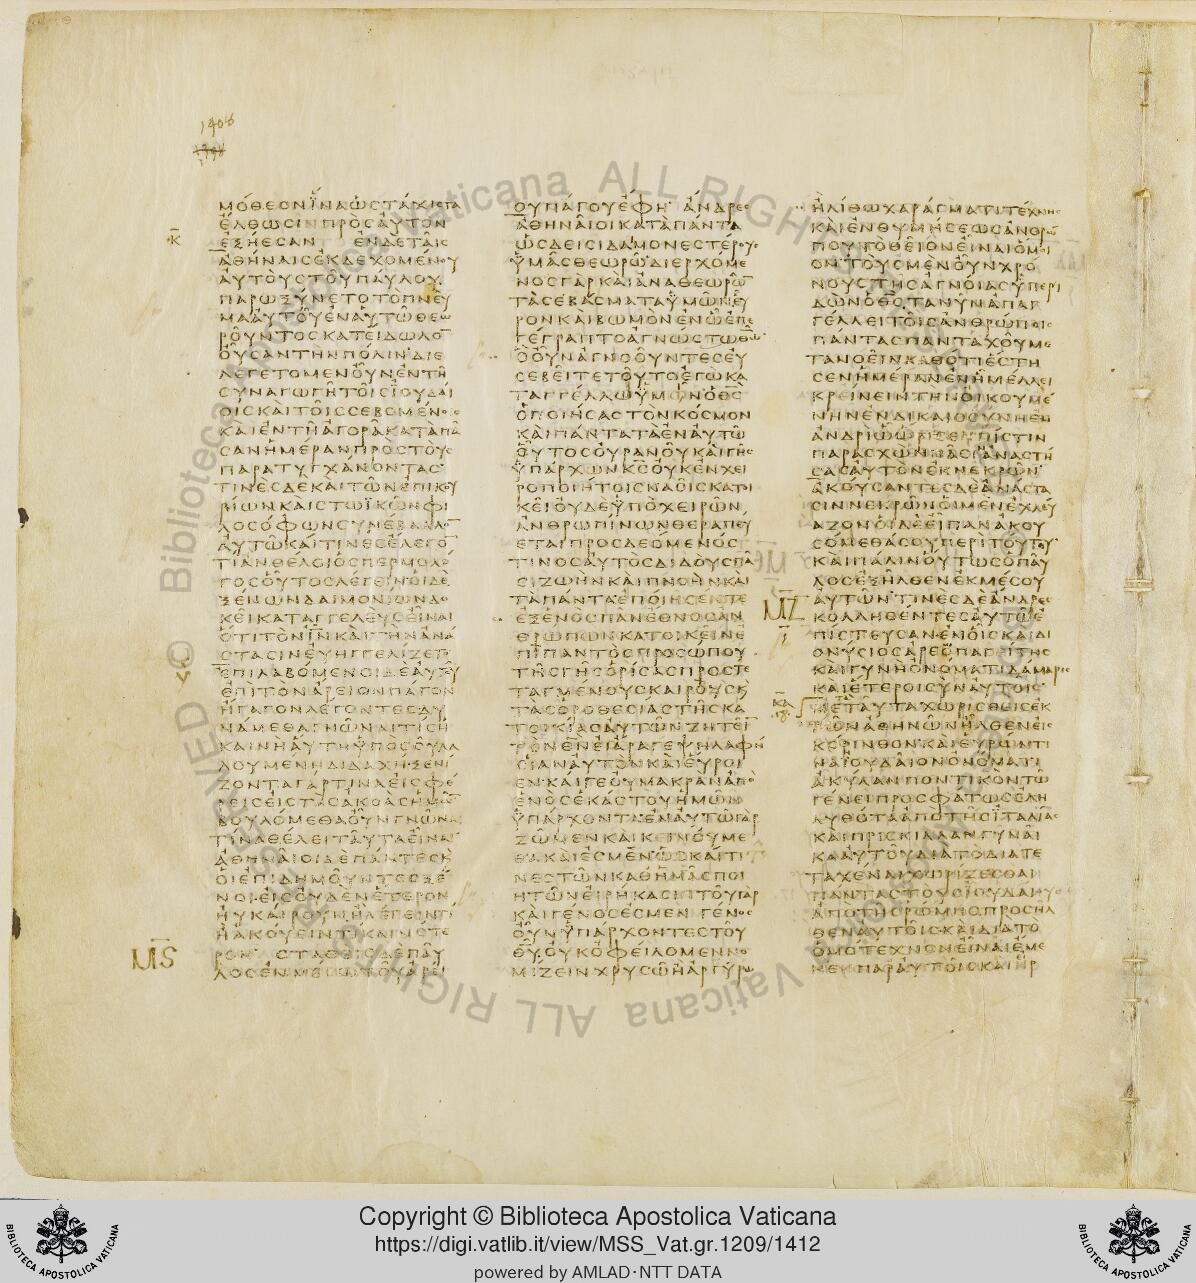 1408
ΜΟΘΕΟΝΙΝΑΩϹΤΑΧΙϹΤΑ
ΕΛΘΩϹΙΝΠΡΟϹΑΥΤΟΝ
Κ̅
ΕΞΗΕϹΑΝ ΕΝΔΕΤΑΙϹ
ΑΘΗΝΑΙϹΕΚΔΕΧΟΜΕΝΟΥ
ΑΥΤΟΥϹΤΟΥΠΑΥΛΟΥ
ΠΑΡΩΞΥΝΕΤΟΤΟΠΝΕΥ
ΜΑΑΥΤΟΥΕΝΑΥΤΩΘΕΩ
ΡΟΥΝΤΟϹΚΑΤΕΙΔΩΛΟ̅
ΟΥϹΑΝΤΗΝΠΟΛΙΝΔΙΕ
ΛΕΓΕΤΟΜΕΝΟΥΝΕΝΤΗ
ϹΥΝΑΓΩΓΗΤΟΙϹΙΟΥΔΑΙ
ΟΙϹΚΑΙΤΟΙϹϹΕΒΟΜΕΝΟΙϹ
ΚΑΙΕΝΤΗΑΓΟΡΑΚΑΤΑΠΑ̅
ϹΑΝΗΜΕΡΑΝΠΡΟϹΤΟΥϹ
ΠΑΡΑΤΥΓΧΑΝΟΝΤΑϹ
ΤΙΝΕϹΔΕΚΑΙΤΩΝΕΠΙΚΟΥ
ΡΙΩΝΚΑΙϹΤΩΪΚΩΝΦΙ
ΛΟϹΟΦΩΝϹΥΝΕΒΑΛΛΟ̅
ΑΥΤΩΚΑΙΤΙΝΕϹΕΛΕΓΟ̅
ΤΙΑΝΘΕΛΟΙΟϹΠΕΡΜΟΛΟ
ΓΟϹΟΥΤΟϹΛΕΓΕΙΝΟΙΔΕ
ΞΕΝΩΝΔΑΙΜΟΝΙΩΝΔΟ
ΚΕΙΚΑΤΑΓΓΕΛΕΥϹΕΙΝΑΙ
ΟΤΙΤΟΝΙ̅Ν̅ΚΑΙΤΗΝΑΝΑ
ϹΤΑϹΙΝΕΥΗΓΓΕΛΙΖΕΤΟ
ΕΠΙΛΑΒΟΜΕΝΟΙΔΕΑΥΤΟΥ
ΕΠΙΤΟΝΑΡΕΙΟΝΠΑΓΟΝ
ΗΓΑΓΟΝΛΕΓΟΝΤΕϹΔΥ
ΝΑΜΕΘΑΓΝΩΝΑΙΤΙϹΗ
ΚΑΙΝΗΑΥΤΗΥΠΟϹΟΥΛΑ
ΛΟΥΜΕΝΗΔΙΔΑΧΗΞΕΝΙ
ΖΟΝΤΑΓΑΡΤΙΝΑΕΙϹΦΕ
ΡΕΙϹΕΙϹΤΑϹΑΚΟΑϹΗΜΩ̅
ΒΟΥΛΟΜΕΘΑΟΥΝΓΝΩΝΑΙ
ΤΙΝΑΘΕΛΕΙΤΑΥΤΑΕΙΝΑΙ
ΑΘΗΝΑΙΟΙΔΕΠΑΝΤΕϹΚ
ΟΙΕΠΙΔΗΜΟΥΝΤΕϹΞΕ
ΝΟΙΕΙϹΟΥΔΕΝΕΤΕΡΟΝ
ΗΥΚΑΙΡΟΥΝΗΛΕΓΕΙΝΤΙ
ΗΑΚΟΥΕΙΝΤΙΚΑΙΝΟΤΕ
Μ̅Ϛ̅
ΡΟΝ ϹΤΑΘΕΙϹΔΕΠΑΥ
ΛΟϹΕΝΜΕϹΩΤΟΥΑΡΕΙ
ΟΥΠΑΓΟΥΕΦΗ ΑΝΔΡΕϹ
ΑΘΗΝΑΙΟΙΚΑΤΑΠΑΝΤΑ
ΩϹΔΕΙϹΙΔΑΙΜΟΝΕϹΤΕΡΟΥϹ
ΥΜΑϹΘΕΩΡΩΔΙΕΡΧΟΜΕ
ΝΟϹΓΑΡΚΑΙΑΝΑΘΕΩΡΩ̅
ΤΑϹΕΒΑϹΜΑΤΑΥΜΩΝΕΥ
ΡΟΝΚΑΙΒΩΜΟΝΕΝΩΕΠΕ
ΓΕΓΡΑΠΤΟΑΓΝΩϹΤΩΘΩ̅
ΟΟΥΝΑΓΝΟΟΥΝΤΕϹΕΥ
ϹΕΒΕΙΤΕΤΟΥΤΟΕΓΩΚΑ
ΤΑΓΓΕΛΛΩΥΜΙΝΟΘ̅Ϲ̅
ΟΠΟΙΗϹΑϹΤΟΝΚΟϹΜΟΝ
ΚΑΙΠΑΝΤΑΤΑΕΝΑΥΤΩ
ΟΥΤΟϹΟΥΡΑΝΟΥΚΑΙΓΗϹ
ΥΠΑΡΧΩΝΚ̅Ϲ̅ΟΥΚΕΝΧΕΙ
ΡΟΠΟΙΗΤΟΙϹΝΑΟΙϹΚΑΤΟΙ
ΚΕΙΟΥΔΕΥΠΟΧΕΙΡΩΝ
ΑΝΘΡΩΠΙΝΩΝΘΕΡΑΠΕΥ
ΕΤΑΙΠΡΟϹΔΕΟΜΕΝΟϹ
ΤΙΝΟϹΑΥΤΟϹΔΙΔΟΥϹΠΑ
ϹΙΖΩΗΝΚΑΙΠΝΟΗΝΚΑΙ
ΤΑΠΑΝΤΑΕΠΟΙΗϹΕΝΤΕ
ΕΞΕΝΟϹΠΑΝΕΘΝΟϹΑΝ
ΘΡΩΠΩΝΚΑΤΟΙΚΕΙΝΕ
ΠΙΠΑΝΤΟϹΠΡΟϹΩΠΟΥ
ΤΗϹΓΗϹΟΡΙϹΑϹΠΡΟϹΤΕ
ΤΑΓΜΕΝΟΥϹΚΑΙΡΟΥϹΚ
ΤΑϹΟΡΟΘΕϹΙΑϹΤΗϹΚΑ
ΤΟΙΚΙΑϹΑΥΤΩΝΖΗΤΕΙ̅
ΤΟΝΘ̅Ν̅ΕΙΑΡΑΓΕΨΗΛΑΦΗ
ϹΙΑΝΑΥΤΟΝΚΑΙΕΥΡΟΙ
ΕΝΚΑΙΓΕΟΥΜΑΚΡΑΝΑΠΟ
ΕΝΟϹΕΚΑϹΤΟΥΗΜΩΝ
ΥΠΑΡΧΟΝΤΑΕΝΑΥΤΩΓΑΡ
ΖΩΜΕΝΚΑΙΚΕΙΝΟΥΜΕ
ΘΑΚΑΙΕϹΜΕΝΩϹΚΑΙΤΙ
ΝΕϹΤΩΝΚΑΘΗΜΑϹΠΟΙ
ΗΤΩΝΕΙΡΗΚΑϹΙΝΤΟΥΓΑΡ
ΚΑΙΓΕΝΟϹΕϹΜΕΝ ΓΕΝΟϹ
ΟΥΝΥΠΑΡΧΟΝΤΕϹΤΟΥ
Θ̅Υ̅ΟΥΚΟΦΕΙΛΟΜΕΝΝΟ
ΜΙΖΕΙΝΧΡΥϹΩΗΑΡΓΥΡΩ
ΗΛΙΘΩΧΑΡΑΓΜΑΤΙΤΕΧΝΗϹ
ΚΑΙΕΝΘΥΜΗϹΕΩϹΑΝΘΡΩ
ΠΟΥΤΟΘΕΙΟΝΕΙΝΑΙΟΜΟΙ
ΟΝ ΤΟΥϹΜΕΝΟΥΝΧΡΟ
ΝΟΥϹΤΗϹΑΓΝΟΙΑϹΥΠΕΡΙ
ΔΩΝΟΘ̅Ϲ̅ΤΑΝΥΝΑΠΑΓ
ΓΕΛΛΕΙΤΟΙϹΑΝΘΡΩΠΟΙϹ
ΠΑΝΤΑϹΠΑΝΤΑΧΟΥΜΕ
ΤΑΝΟΕΙΝΚΑΘΟΤΙΕϹΤΗ
ϹΕΝΗΜΕΡΑΝΕΝΗΜΕΛΛΕΙ
ΚΡΕΙΝΕΙΝΤΗΝΟΙΚΟΥΜΕ
ΝΗΝΕΝΔΙΚΑΙΟϹΥΝΗΕΝ
ΑΝΔΡΙΩΩΡΙϹΕΝΠΙϹΤΙΝ
ΠΑΡΑϹΧΩΝΠΑϹΙΑΝΑϹΤΗ
ϹΑϹΑΥΤΟΝΕΚΝΕΚΡΩΝ
ΑΚΟΥϹΑΝΤΕϹΔΕΑΝΑϹΤΑ
ϹΙΝΝΕΚΡΩΝΟΙΜΕΝΕΧΛΕΥ
ΑΖΟΝΟΙΔΕΕΙΠΑΝΑΚΟΥ
ϹΟΜΕΘΑϹΟΥΠΕΡΙΤΟΥΤΟΥ
ΚΑΙΠΑΛΙΝΟΥΤΩϹΟΠΑΥ
ΛΟϹΕΞΗΛΘΕΝΕΚΜΕϹΟΥ
Μ̅Ζ̅
ΑΥΤΩΝΤΙΝΕϹΔΕΑΝΔΡΕϹ
ΚΟΛΛΗΘΕΝΤΕϹΑΥΤΩΕ
ΠΙϹΤΕΥϹΑΝΕΝΟΙϹΚΑΙΔΙ
ΟΝΥϹΙΟϹΑΡΕΟΠΑΓΙΤΗϹ
ΚΑΙΓΥΝΗΟΝΟΜΑΤΙΔΑΜΑΡΙϹ
ΚΑΙΕΤΕΡΟΙϹΥΝΑΥΤΟΙϹ
Κ̅Α̅
ΜΕΤΑΥΤΑΧΩΡΙϹΘΕΙϹΕΚ
ΤΩΝΑΘΗΝΩΝΗΛΘΕΝΕΙϹ
ΚΟΡΙΝΘΟΝΚΑΙΕΥΡΩΝΤΙ
ΝΑΙΟΥΔΑΙΟΝΟΝΟΜΑΤΙ
ΑΚΥΛΑΝΠΟΝΤΙΚΟΝΤΩ
ΓΕΝΕΙΠΡΟϹΦΑΤΩϹΕΛΗ
ΛΥΘΟΤΑΑΠΟΤΗϹΙΤΑΛΙΑϹ
ΚΑΙΠΡΙϹΚΙΛΛΑΝΓΥΝΑΙ
ΚΑΑΥΤΟΥΔΙΑΤΟΔΙΑΤΕ
ΤΑΧΕΝΑΙΧΩΡΙΖΕϹΘΑΙ
ΠΑΝΤΑϹΤΟΥϹΙΟΥΔΑΙΟΥϹ
ΑΠΟΤΗϹΡΩΜΗϹΠΡΟϹΗΛ
ΘΕΝΑΥΤΟΙϹΚΑΙΔΙΑΤΟ
ΟΜΟΤΕΧΝΟΝΕΙΝΑΙΕΜΕ
ΝΕΝΠΑΡΑΥΤΟΙϹΚΑΙΗΡ
© Biblioteca Apostolica Vaticana ALL RIGHTS RESERVED
BIBLIOTECA APOSTOLICA VATICANA
Copyright © Biblioteca Apostolica Vaticana
https://digi.vatlib.it/view/MSS_Vat.gr.1209/1412
powered by AMLAD·NTT DATA
BIBLIOTECA APOSTOLICA VATICANA